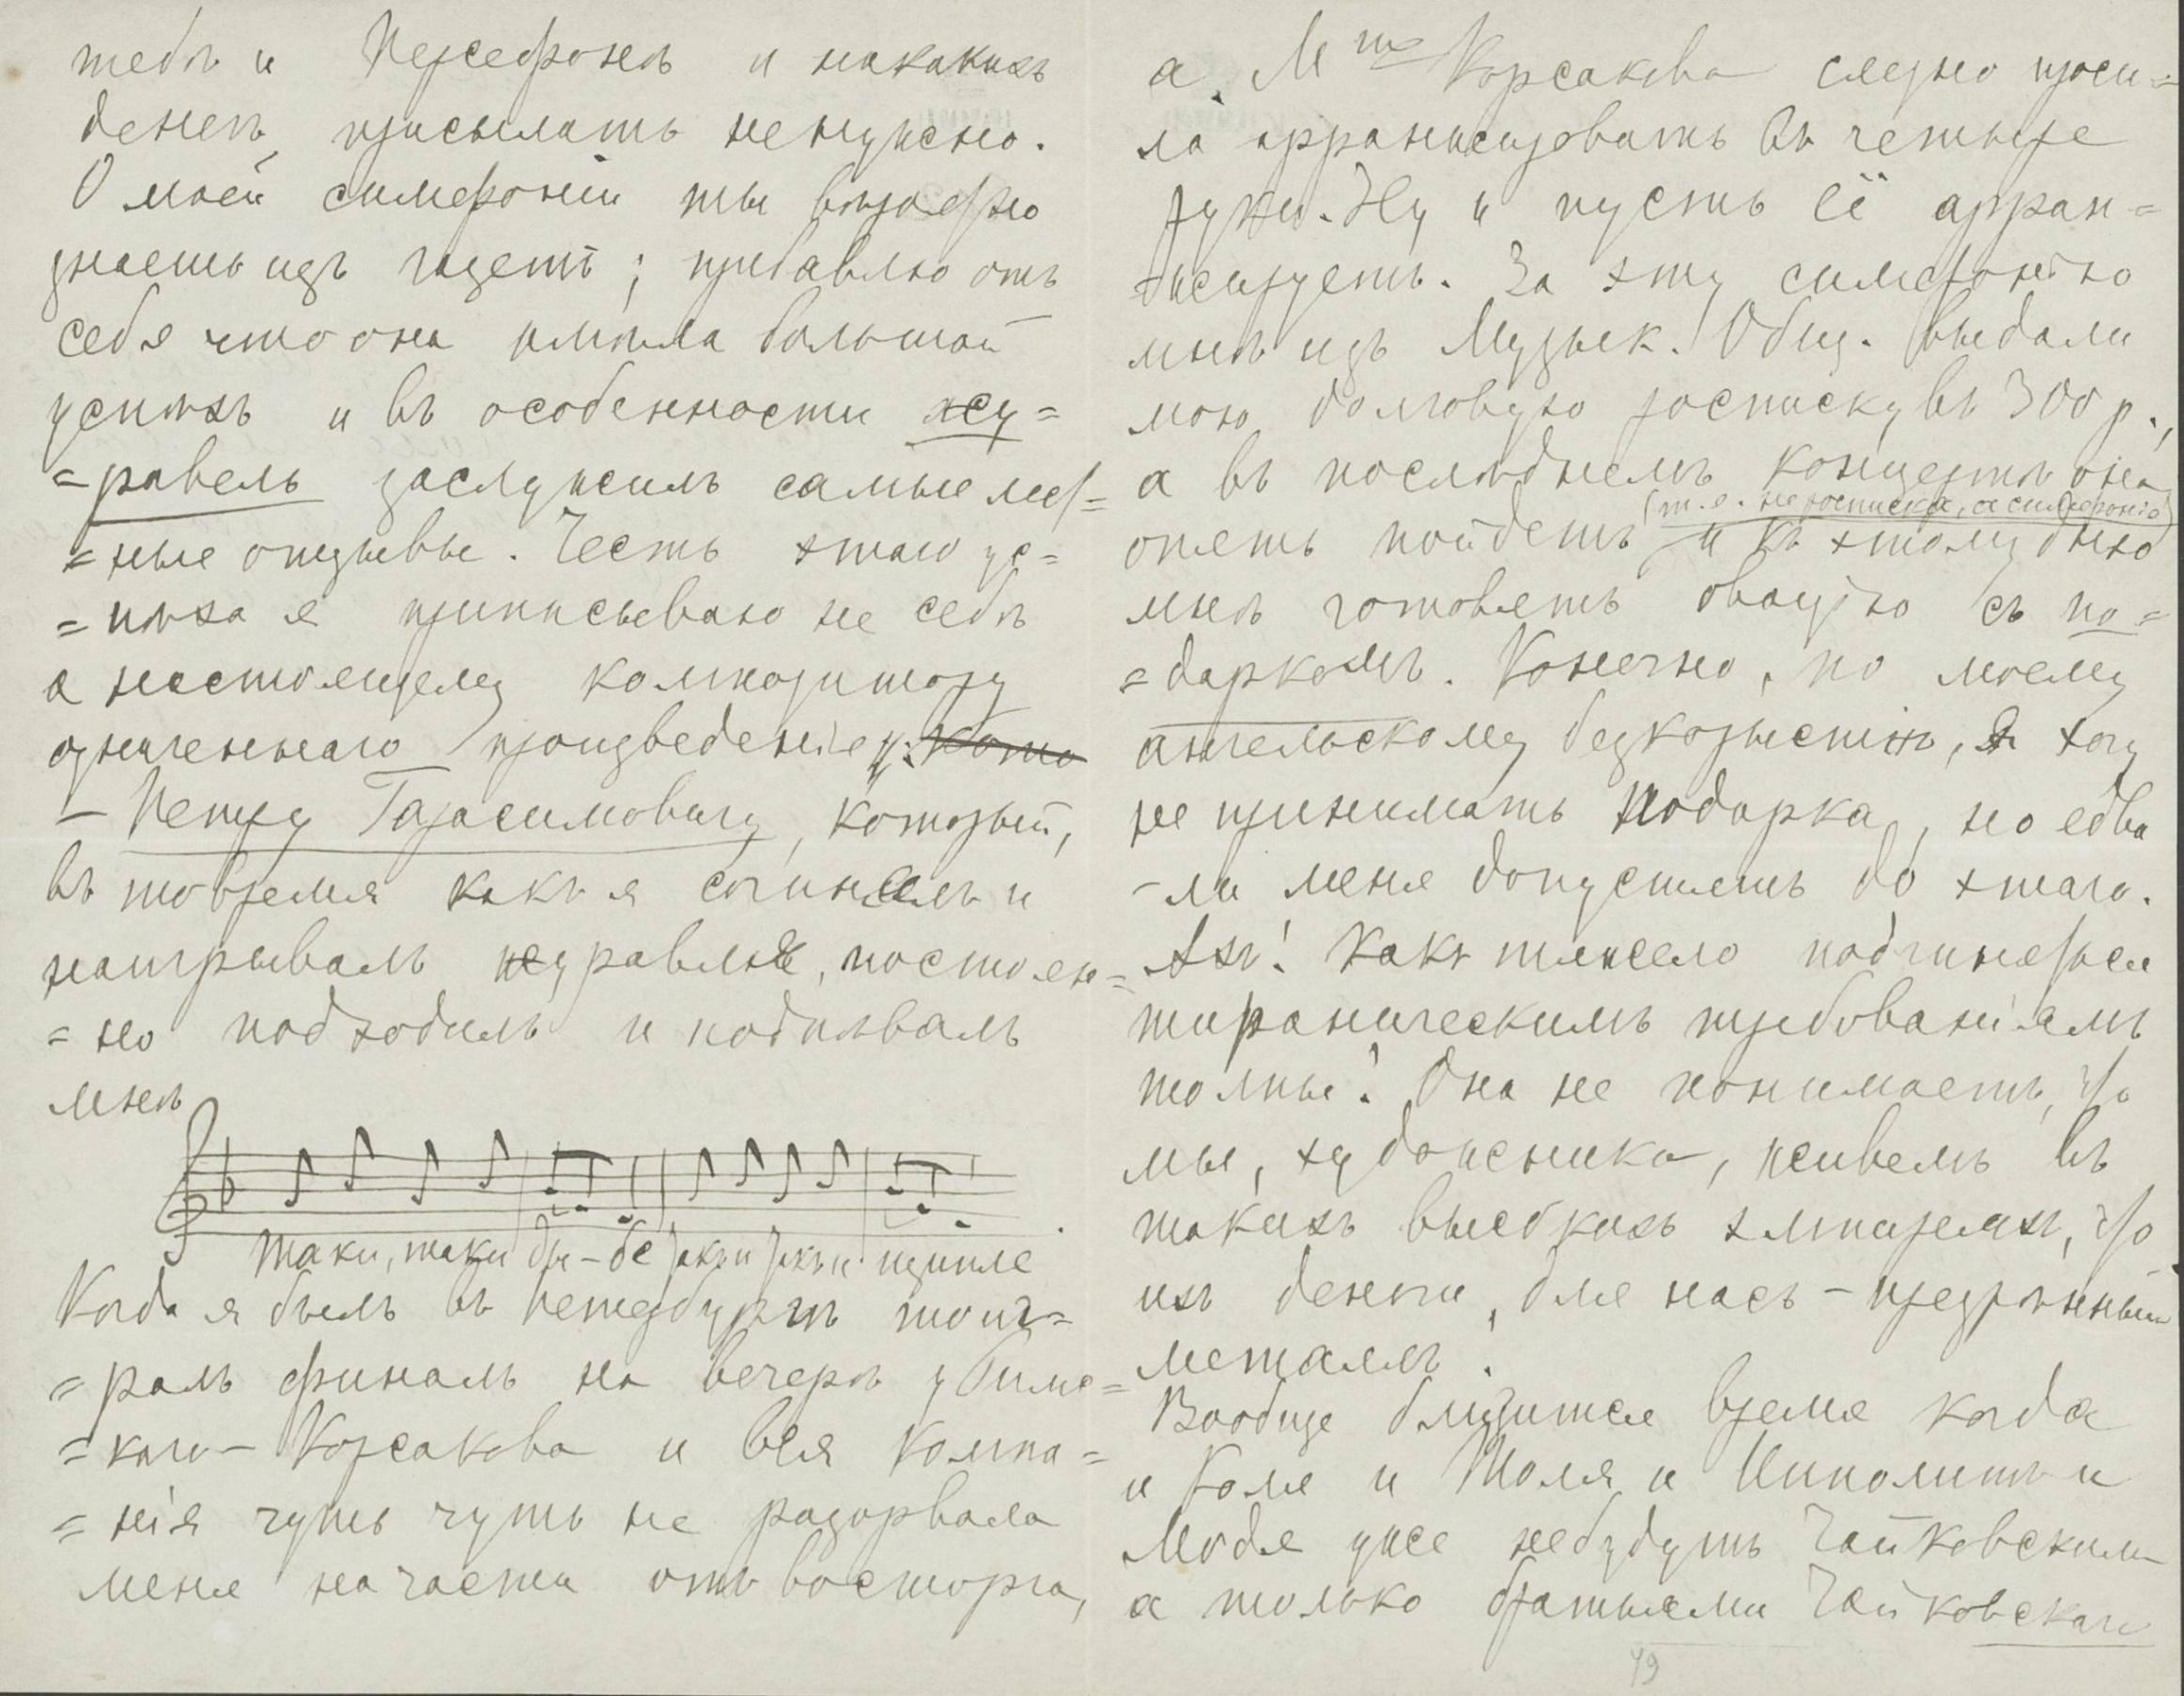 тебѣ и Персефонѣ и никакихъ
денегъ присылать ненужно.
О моей симфоніи ты вѣроятно
знаешь изъ газетъ; прибавлю отъ
себя что она имѣла большой
успѣхъ и въ особенности жу=
=равель заслужилъ самые лест=
=ные отзывы. Честь этаго ус=
=пѣха я приписываю не себѣ
а настоящему композитору
означеннаго произведенія
– Петру Герасимовичу, который,
въ то время какъ я сочинялъ и
наигрывалъ журавля, постоян=
=но подходилъ и подпѣвалъ
мнѣ
Когда я былъ въ Петербургѣ то иг=
=ралъ финалъ на вечерѣ у Римс=
=каго-Корсакова и вся компа=
=нія чуть чуть не разорвала
меня на части отъ восторга,
а Mme Корсакова слезно проси=
ла арранжировать въ четыре
руки. Ну и пусть её арран=
=жируетъ. За эту симфонію
мнѣ изъ Музык. Общ. выдали
мою долговую росписку въ 300 р.,
а въ послѣднемъ концертѣ она
(т.е. не росписка, а симфонія)
опять пойдетъ и къ этому дню
мнѣ готовятъ овацію съ по=
=даркомъ. Конечно, по моему
ангельскому безкорыстію, я хочу
не принимать подарка, но едва
–ли меня допустятъ до этаго.
Ахъ! Какъ тяжело подчиняться
тираническимъ требованіямъ
толпы! Она не понимаетъ, что
мы, художники, живемъ въ
такихъ высокихъ эмпиреяхъ, что
ихъ деньги, для насъ – презрѣнный
металлъ!
Вообще близится время когда
и Коля и Толя и Ипполитъ и
Модя уже небудутъ Чайковскими
а только братьями Чайковскаго
49